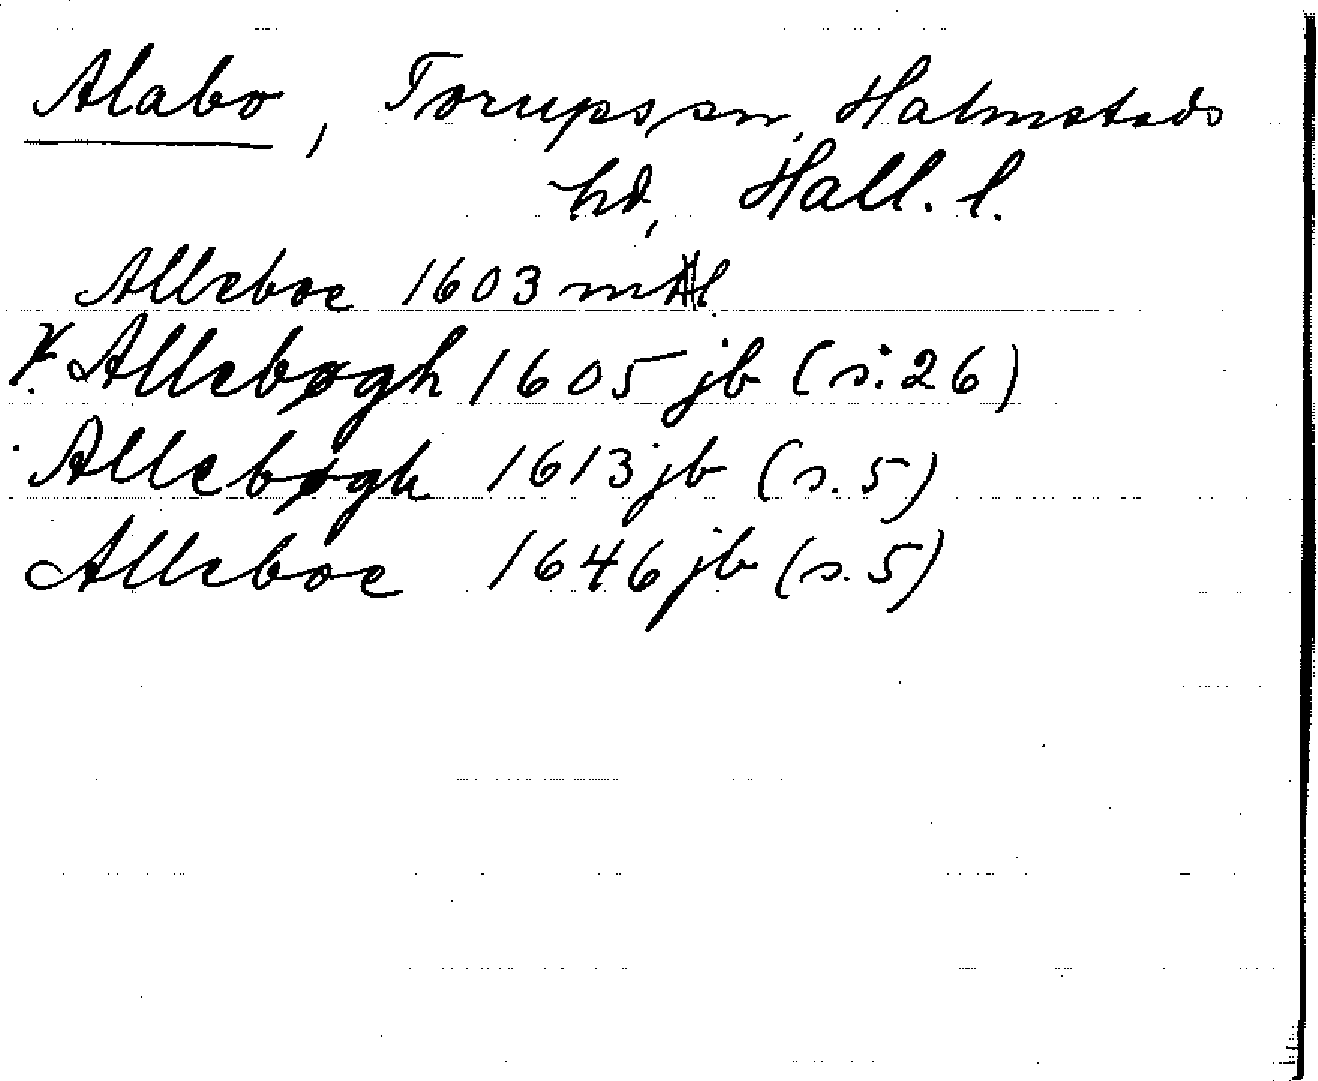 Alabo, Torups sn, Halmstads
hd, Hall. l.
Alleboe 1603
Allebøgh 1605 jb (s. 26)
Allebøgh 1613 jb (s. 5)
Alleboe 1646 jb (s. 5)